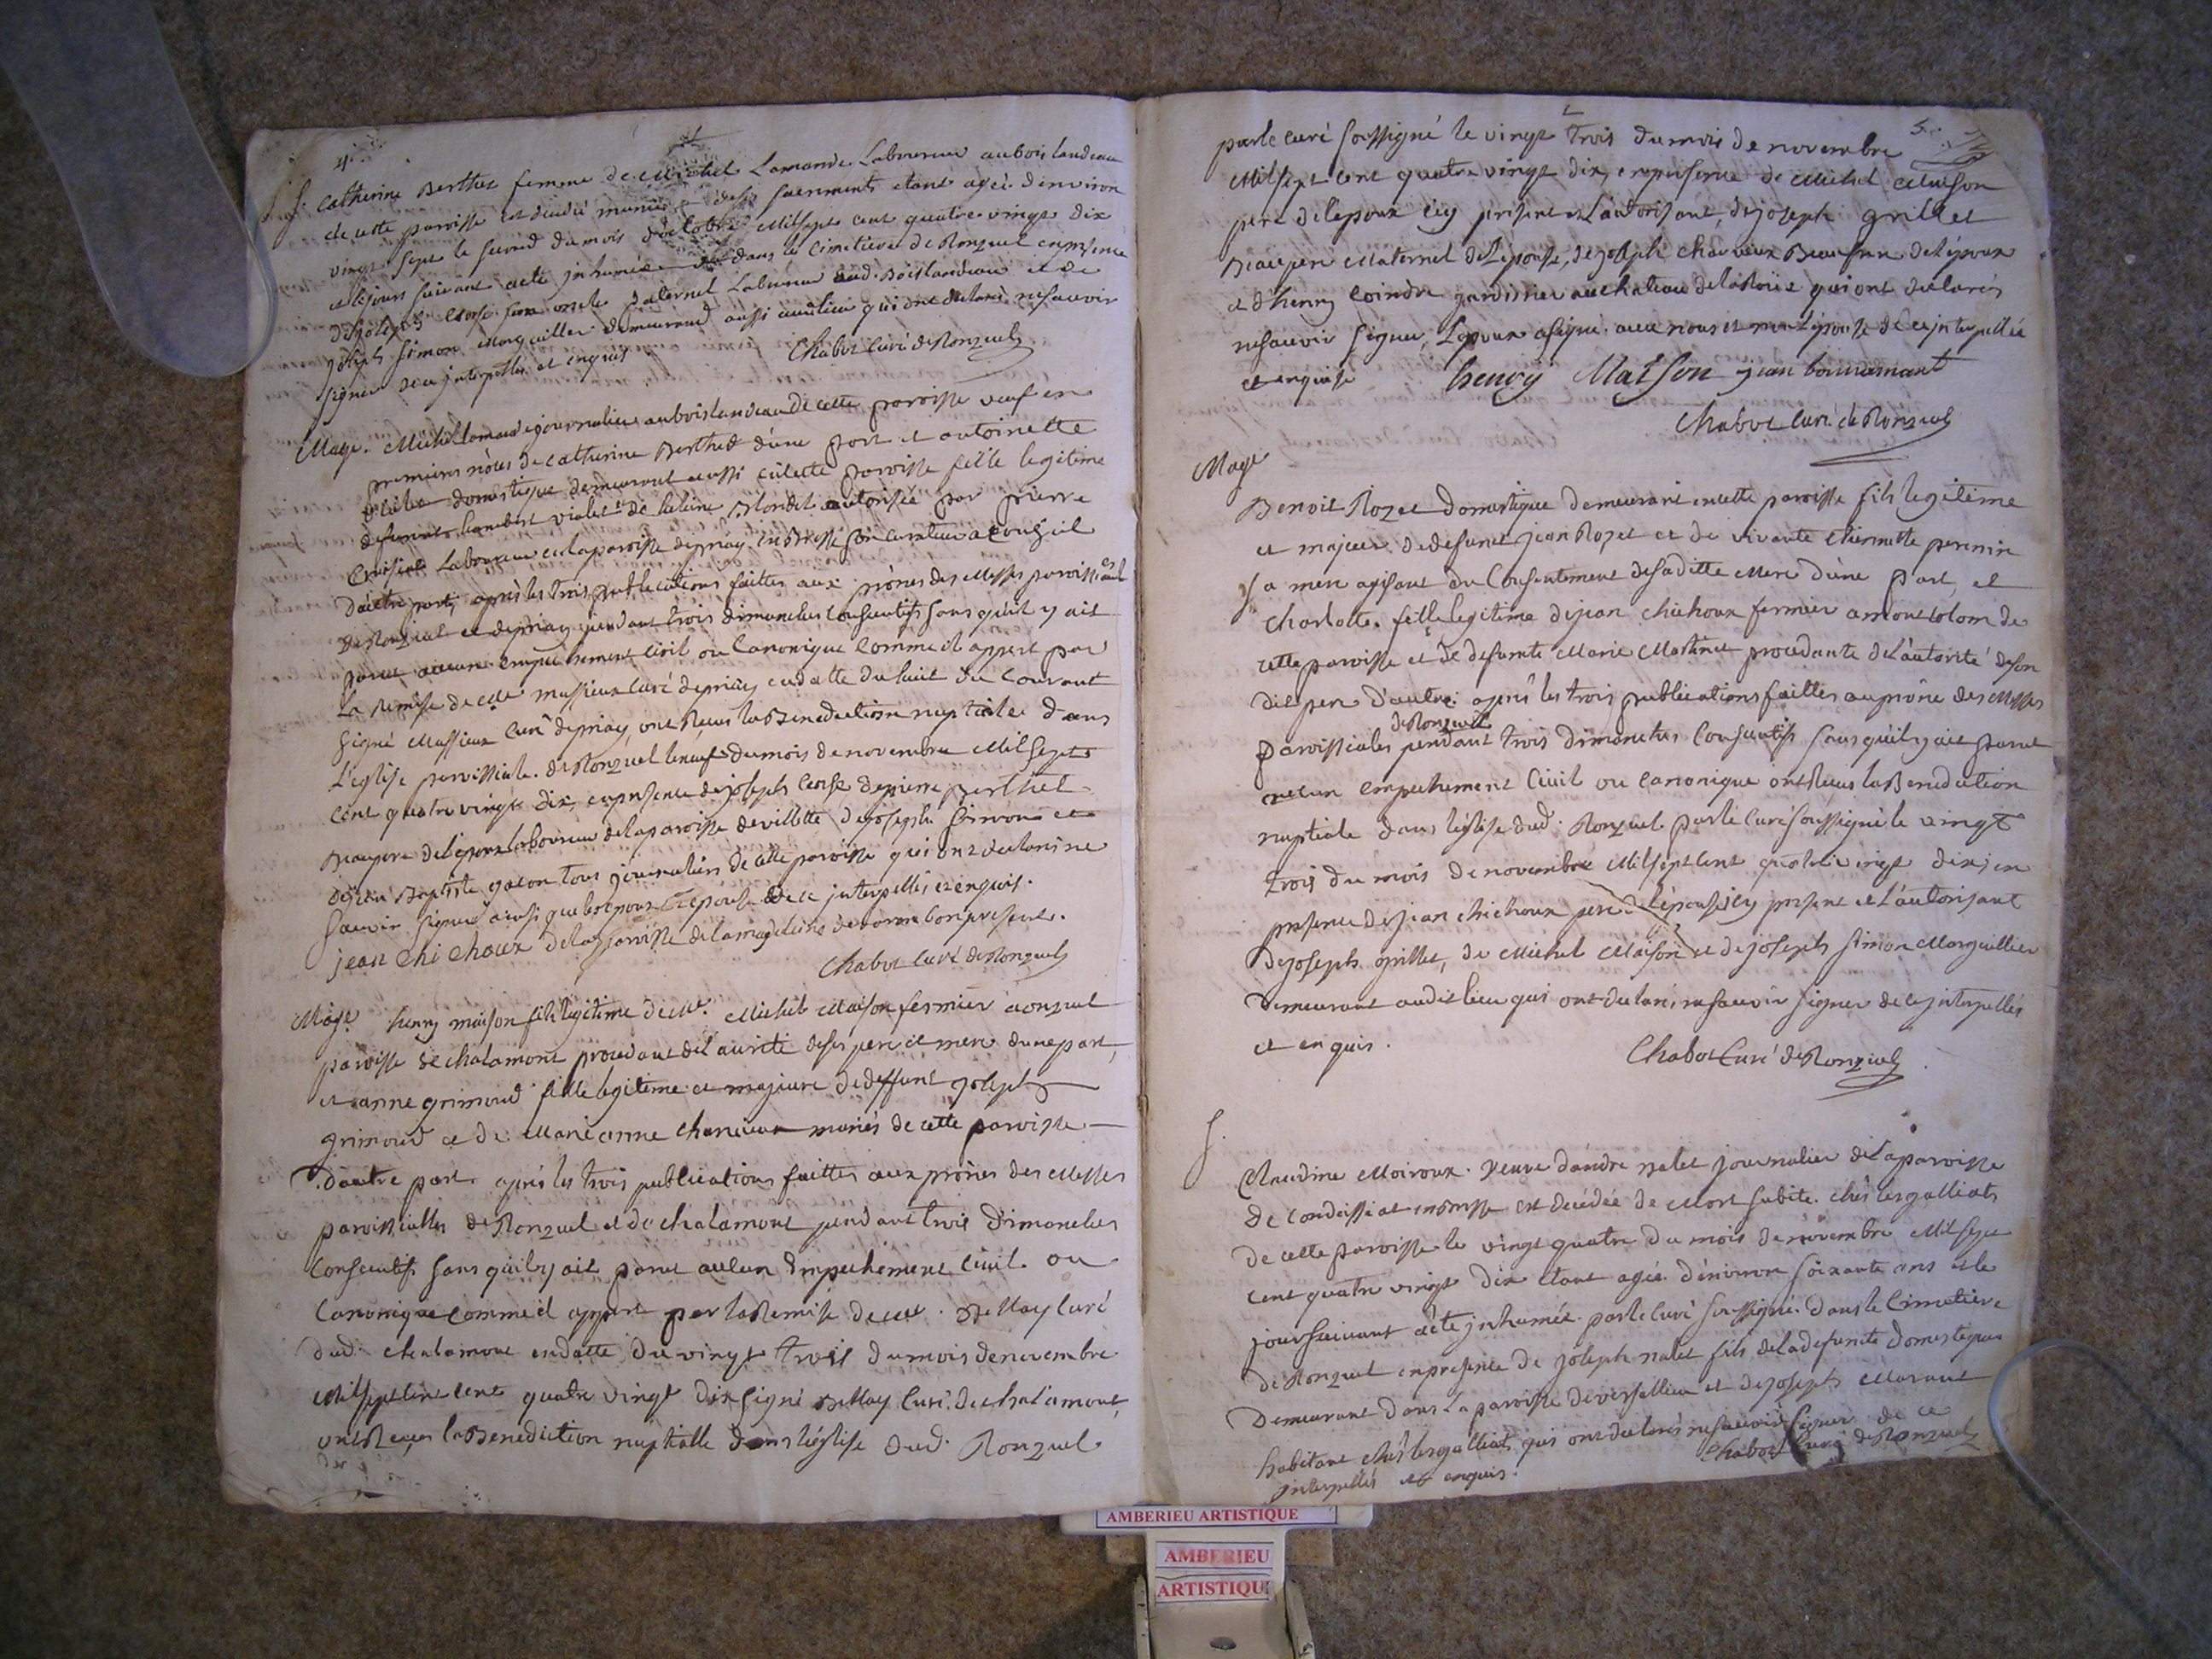 4.
S. Catherine Berthet femme de Michel Lamande Laboureur au bois landeau
de cette paroisse est décédée munie des sacrements etant agée d'environ
vingt sept le second du mois d'octobre Mil sept cent quatre vingt dix
et le jour suivant a été inhumée dans le cimetiere de Ronzuel en presence
de joseph Corse son oncle paternel Laboureur aud. Bois landeau et de
joseph Simon Marguiller demeurand aussi audit lieu qui ont déclaré ne savoir
signer de ce interpellés et enquis
Chabot curé de Ronzuel
Mage. Michel lamande journalier au bois landeau de cette paroisse veuf en
premieres nôces de catherine Berthet d'une part et antoinette
violet domestique demeurant aussi en cette paroisse fille legitime
de defunts lambert violet et de heleine Blondet autorisée par pierre
Laboureur en la paroisse de priay en Bresse son curateur a conseil
d'autre part, après les trois publications faittes aux prônes des Messes paroissiales
de Ronzuel et de priay pendant trois dimanches consecutifs sans qu'il y ait
parut aucun empechement civil ou canonique comme il appert par
La remise de messieur curé de priay en datte du huit du Courant
signé Messieur curé de priay, ont reçus la Benediction nuptiale dans
L'eglise paroissiale de Ronzuel le neuf du mois de novembre Mil sept
cent quatre vingt dix, en presence de joseph Corse de pierre Berthet
Beaupere de l'epoux laboureur de la paroisse de villette de joseph Simon et
de jean Baptiste gacon tous journaliers de cette paroisse qui ont declaré ne
savoir signer ainsi que les epoux L'epouse de ce interpellés et enquis.
jean Chi choux de la paroisse de la magdeleine
Chabot curé de Ronzuel
Mage henry maison fils legitime de Mr. Michel Maison fermier a ronzuel
paroisse de chalamont procedant de l'autorité de ses pere et mere d'une part,
et anne grimoud fille legitime et majeure de deffunt joseph
grimoud et de Marie anne mariés de cette paroisse
d'autre part après les trois publications faittes aux prônes des Messes
paroissialles de Ronzuel et de chalamont pendant trois dimanches
consecutifs sans qu'il y ait parut aucun Empechement civil ou
Canonique comme il appert par la Remise de Mr. curé
dud. chalamont en datte du vingt trois du mois de novembre
Mil sept cent cent quatre vingt dix signé curé de chalamont,
ont Reçus la Benediction nuptialle dans l'église dud. Ronzuel
5.
par le curé soussigné le vingt trois du mois de novembre
Mil sept cent quatre vingt dix, en presence de Michel Maison
pere de l'epoux icy present et L'autorisant, de joseph grillet
Beaupere Maternel de L'epouse, de joseph Beaufrere de L'epoux
et d'henry Coindre jardinier au chateau de la Roüe qui ont declarés
ne savoir signer, L'epoux a signé avec nous et non L'épouse de ce interpellée
et enquise henry Maison jean bonnamant
Chabot curé de Ronzuel
Mage
Benoit Rozet Domestique demeurant en cette paroisse fils legitime
et majeur de defunt jean Rozet et de vivante thiennette perrnin
sa mere agissant du Consentement de sa ditte Mere d'une part, et
charlotte fille legitime de jean chichoux fermier a mont colom de
cette paroisse et de defunte Marie Martinet procedante de L'autorité de son
dit pere d'autre. après les trois publications faittes au prône des Messes
de Ronzuel
paroissiales pendant trois dimanches Consecutifs sans qu'il y ait parut
aucun empechement Civil ou canonique ont Reçus la Benediction
nuptiale dans l'église dud. Ronzuel par le curé soussigné le vingt
trois du mois de novembre Mil sept cent quatre vingt dix, en
presence de jean chichoux pere de l'épouse icy present et L'autorisant
de joseph grillet, de Michel Maison et de joseph simon Marguillier
demeurant audit lieu qui ont declaré, ne savoir signer de ce interpellés
et enquis.
Chabot Curé de Ronzuel
S.
Claudine Moiroux veuve d'andré nalet journalier de La paroisse
de condeissiat en Bresse est decédée de Mort subite chés les galliats
de cette paroisse le vingt quatre du mois de novembre Mil sept
cent quatre vingt dix etant agée d'environ soixante ans et le
jour suivant a été inhumée par le curé soussigné dans le cimetiere
de Ronzuel en presence de joseph nalet fils de la defunte domestique
demeurant dans La paroisse de versailleux et de joseph Morant
habitant chés les galliats qui ont declarés ne savoir signer de ce
interpellés et enquis.
Chabot Curé de Ronzuel
AMBERIEU ARTISTIQUE
AMBERIEU
ARTISTIQU